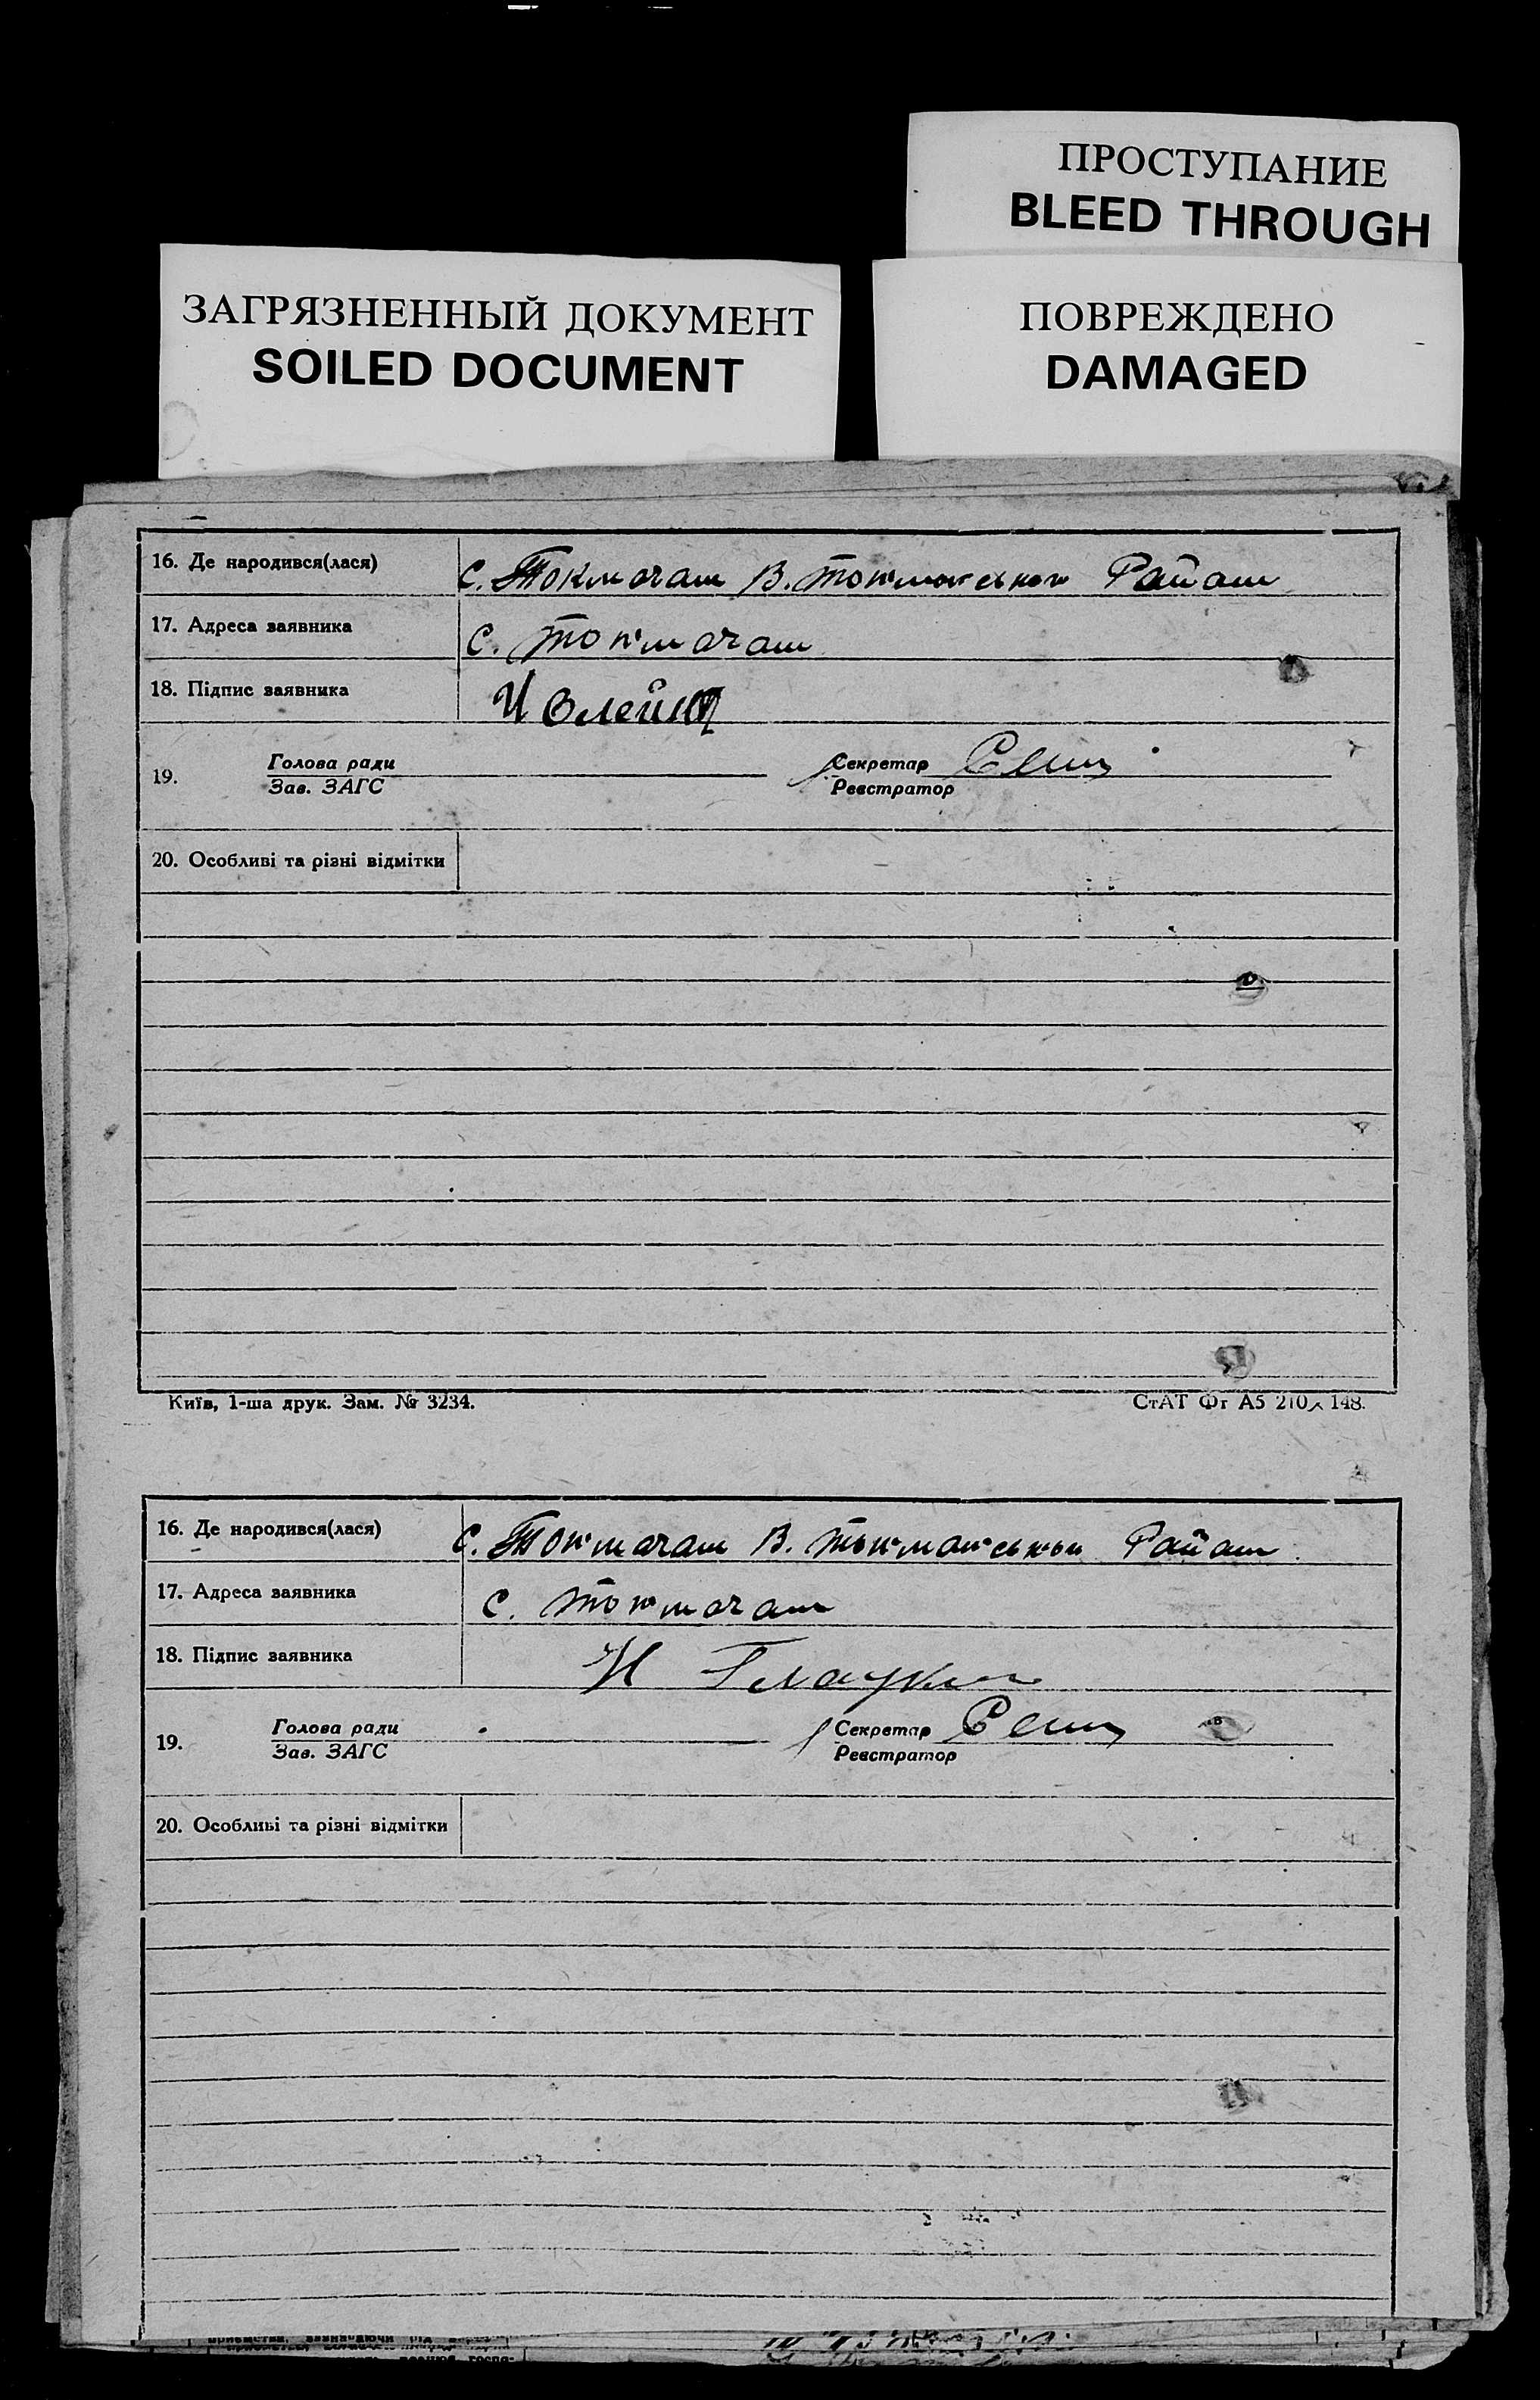 ПРОСТУПАНИЕ
BLEED THROUGH
ЗАГРЯЗНЕННЫЙ ДОКУМЕНТ
SOILED DOCUMENT
ПОВРЕЖДЕНО
DAMAGED
16. Де народився(лася) с. Токмачат В. Токмакського
17. Адреса заявника с. Токмачат
18. Підпис заявника И
19. Голова ради Секретар
Зав. ЗАГС Реєстратор
20. Особливі та різні відмітки
Київ, 1-ша друк. Зам. № 3234. СтАТ Фг А5 210×148.
16. Де народився(лася) с. Токмачат В.
17. Адреса заявника с. Токмачат
18. Підпис заявника Н
19. Голова ради Секретар
Зав. ЗАГС Реєстратор
20. Особливі та різні відмітки